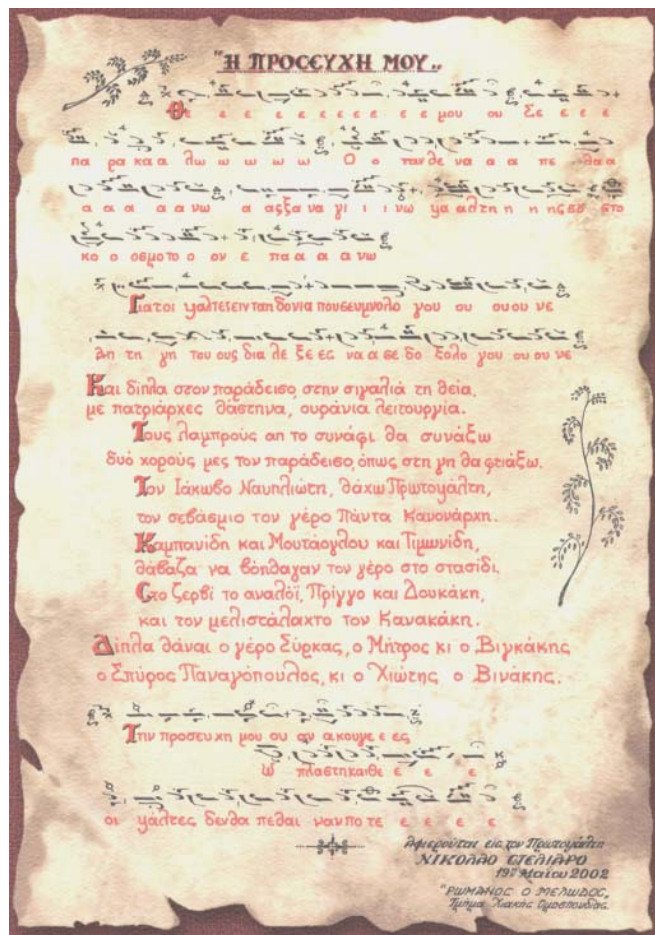 "Η ΠΡΟΣΕΥΧΗ ΜΟΥ"
Θε ε ε ε ε ε ε ε ε ε μου ου Σε ε ε ε
πα ρα κα α λω ω ω ω ω Ο ο ταν θε να α α πε θα α
α α α α α νω α ας ξα να γι ι ι νω ψα αλ τη η η ης στο
κο ο οσμο το ο ον ε πα α α α νω
Γιατοι ψαλτεςειν ταηδονια πουσευμνολο γου ου ου ου νε
Απ τη γη του ους δια λε ξε ες να α σε δο ξολο γου ου ου νε
Και δίπλα στον παράδεισο, στην σιγαλιά τη θεία,
με πατριάρχες θάστηνα, ουράνια λειτουργία.
Τους λαμπρούς απ το συνάφι θα συνάξω
δυό χορούς μες τον παράδεισο, όπως στη γη θα φτιάξω.
Τον Ιάκωβο Ναυπλιώτη, θάχω Πρωτοψάλτη,
τον σεβάσμιο τον γέρο Πάντα Κανονάρχη.
Καμπανίδη και Μουτάογλου και Τιμωνίδη,
θάβαζα να βοηθαγαν τον γέρο στο στασίδι.
Στο ζερβί το αναλόϊ, Πρίγγο και Δουκάκη,
και τον μελιστάλαχτο τον Κανακάκη.
Δίπλα θάναι ο γέρο Σύρκας, ο Μήτρος κι ο Βιγκάκης
ο Σπύρος Παναγόπουλος, κι ο Χιώτης ο Βινάκης.
Την προσευχη μου ου αν ακουγε ε ες
ω πλαστηκαιθε ε ε ε
οι ψάλτες δενθα πεθαι νανποτε ε ε ε ε
Αφιερούται εις τον Πρωτοψάλτη
ΝΙΚΟΛΑΟ ΣΤΕΛΙΑΡΟ
19η Μαίου 2002
"ΡΩΜΑΝΟΣ Ο ΜΕΛΩΔΟΣ,
Τμήμα Χιακής Ομοσπονδίας.